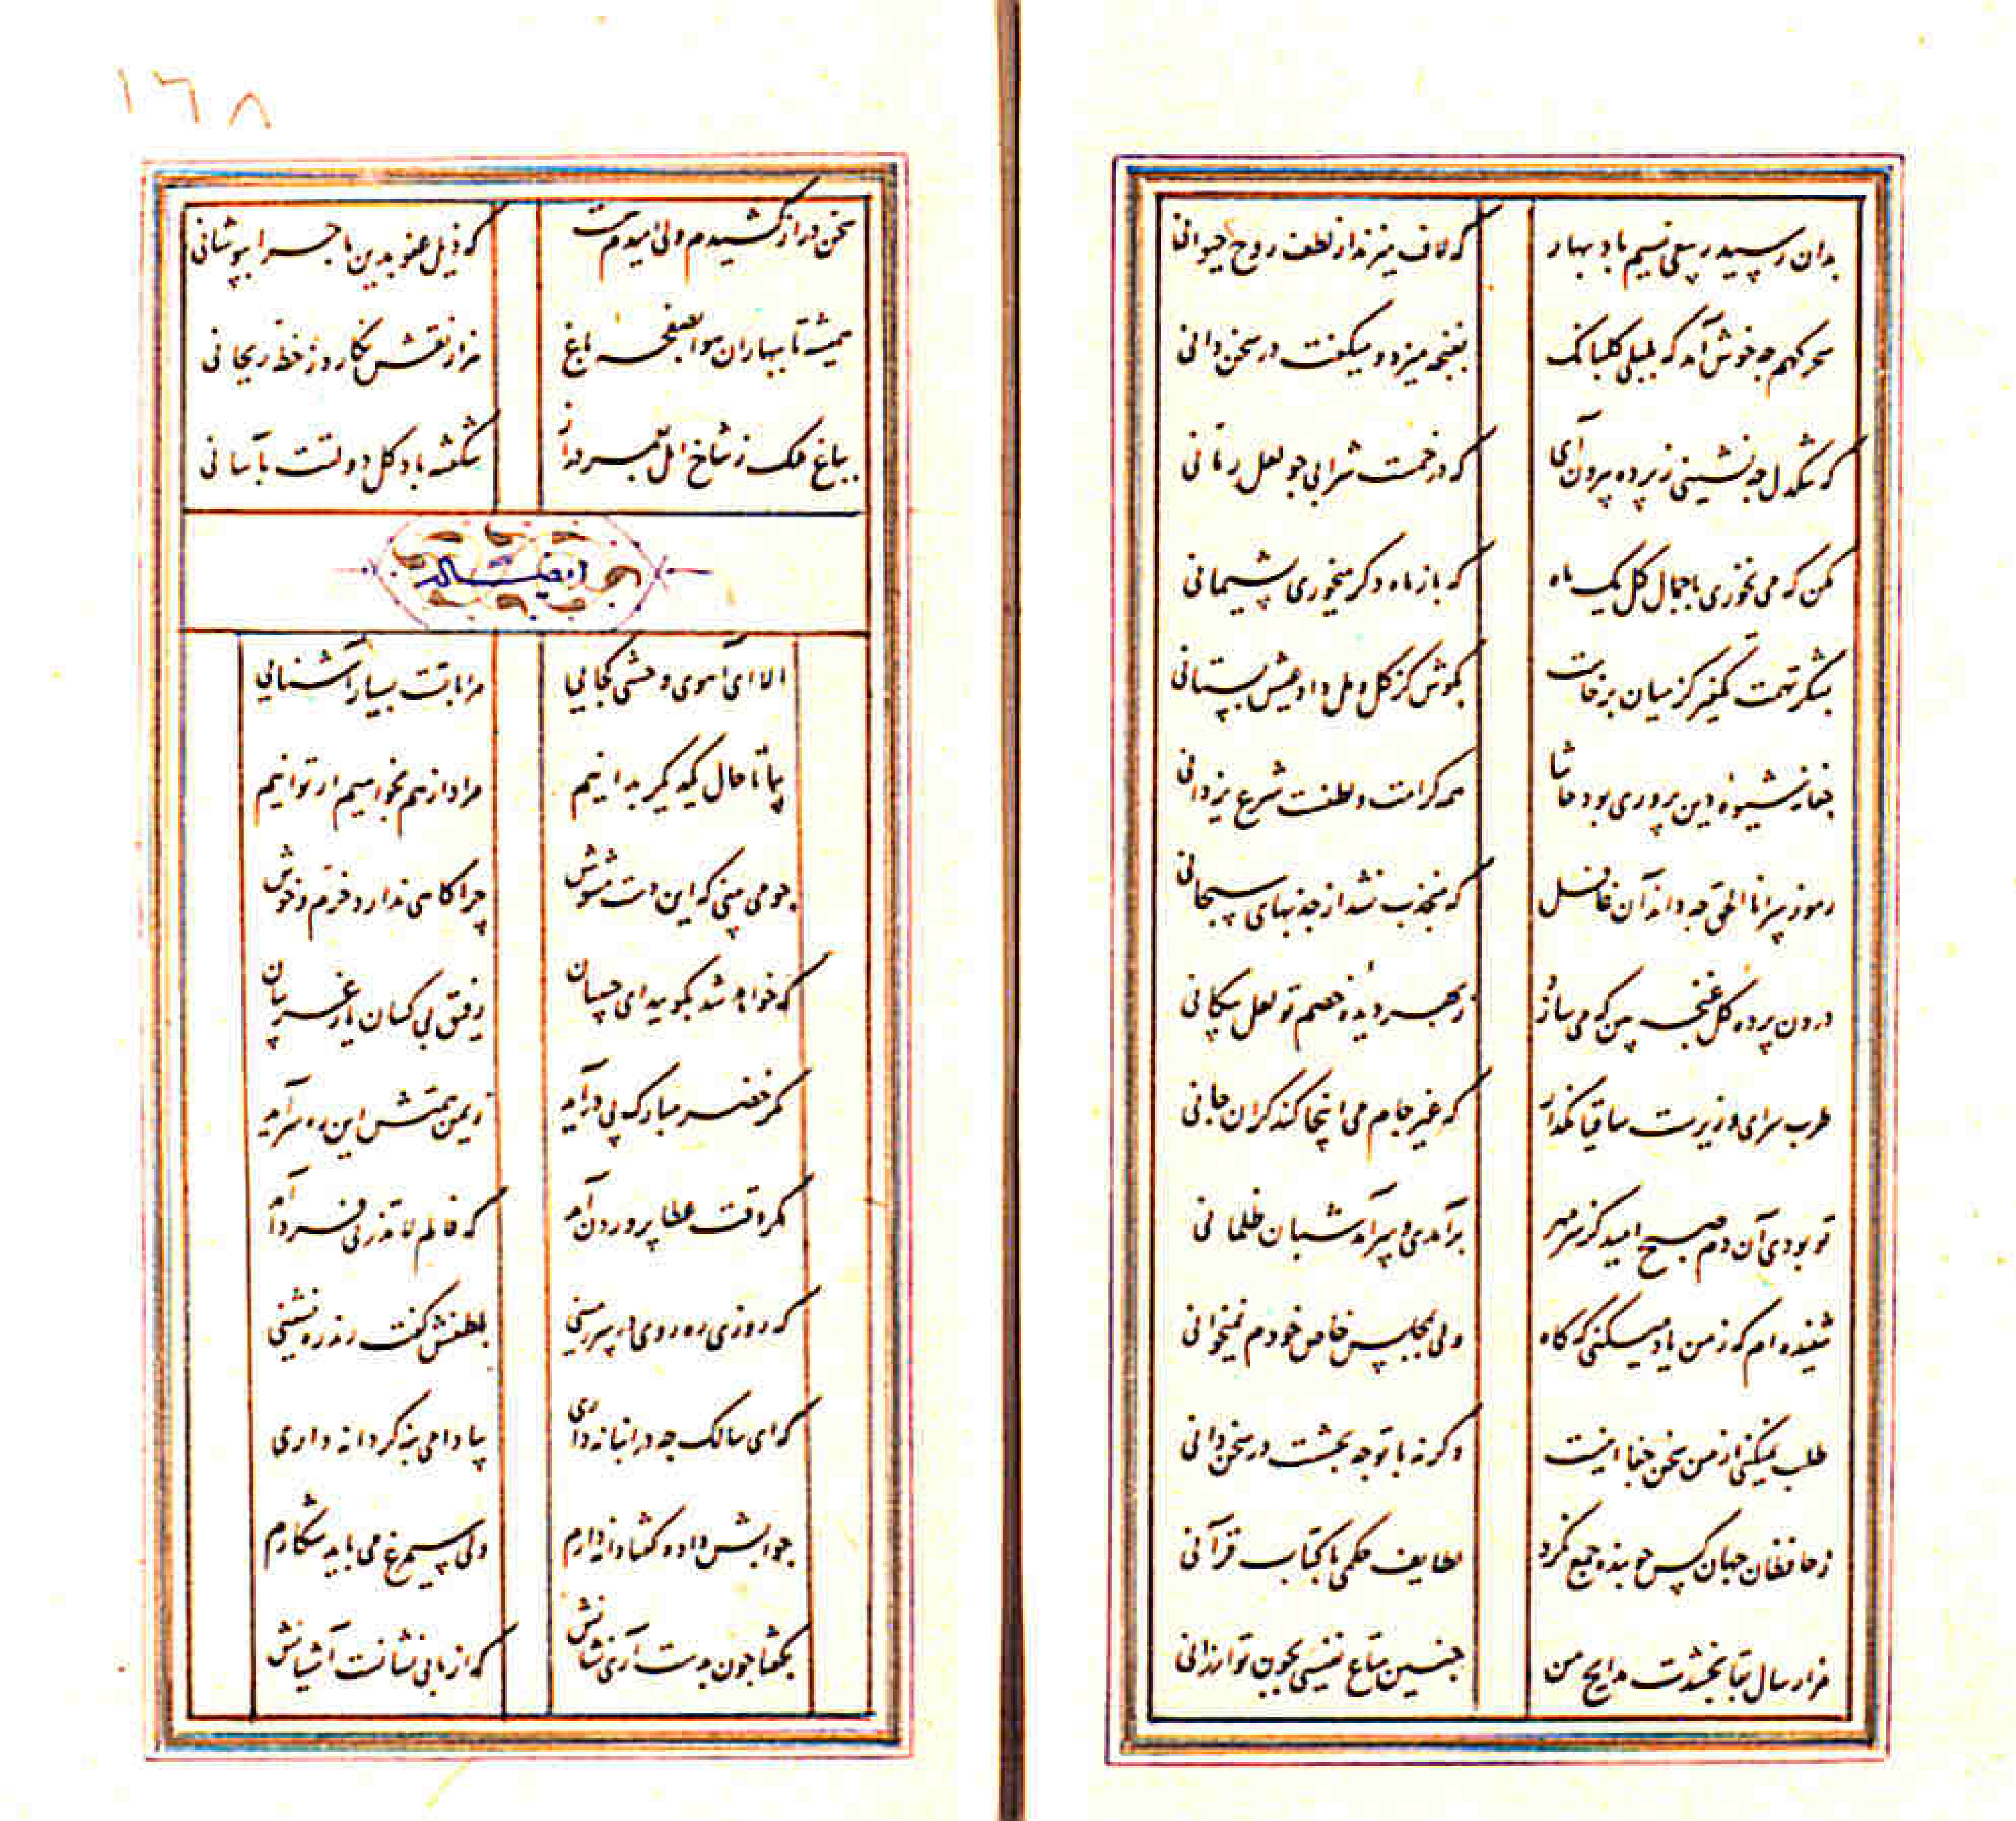 بدان رسید ز سعی نسیم باد بهار که لاف میزند از لطف روح حیوانی
سحرکهم چه خوش آمد که بلبلی کلبانک بغنچه میزد و میکفت در سخن دانی
که تنکدل چه نشینی ز پرده بیرون آی که در خمست شرابی چو لعل رمانی
مکن که می نخوری با جمال کل یک ماه که باز ماه دکر میخوری پشیمانی
بشکر تهمت تکفیر کز میان برخاست بکوش کز کل و مل داد عیش بستانی
جفا نه شیوه دین پروری بود حاشا همه کرامت و لطفست شرع یزدانی
رموز سر انا الحق چه داند آن غافل که منجذب نشد از جذبهای سبحانی
درون پرده کل غنچه بین که می سازد ز بهر دیده خصم تو لعل پیکانی
طرب سرای وزیرست ساقیا مکذار که غیر جام می اینجا کند کران جانی
تو بودی آن دم صبح امید کز سر مهر برآمدی و سرآمد شبان ظلمانی
شنیده ام که ز من یاد میکنی که کاه ولی بمجلس خاص خودم نمیخوانی
طلب نمیکنی از من سخن جفا اینست وکرنه با تو چه بحثست در سخن دانی
ز حافظان جهان کس چو بنده جمع نکرد لطایف حکمی با کتاب قرآنی
هزار سال بقا بخشدت مدایح من چنین متاع نفیسی بچون تو ارزانی
١٦٨
سخن دراز کشیدم ولی امیدم هست که ذیل عفو بدین ماجرا بپوشانی
همیشه تا ببهاران هوا بصفحه باغ هزار نقش نکارد ز خط ریحانی
بباغ ملک ز شاخ امل بعمر دراز شکفته باد کل دولتت بآسانی
ایضا له
الا ای آهوی وحشی کجایی مرا با تست بسیار آشنایی
بیا تا حال یکدیکر بدانیم مراد از هم بخواهیم ار توانیم
چو می بینی که این دشت مشوش چراکاهی ندارد خرم و خوش
که خواهد شد بکوید ای حبیبان رفیق بی کسان یار غریبان
مکر خضر مبارک پی درآید ز یمن همتش این ره سرآید
مکر وقت عطا پروردن آمد که فالم لا تذرنی فردا آمد
که روزی ره روی در سرزمینی بلطفش کفت رند ره نشینی
که ای سالک چه در انبانه داری بیا دامی بنه کر دانه داری
جوابش داد و کفتا دانه دارم ولی سیمرغ می باید شکارم
بکفتا چون بدست آری نشانش که از ما بی نشانست آشیانش